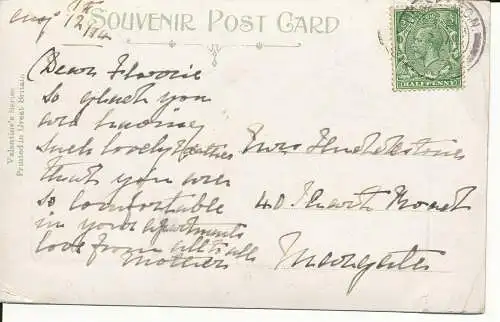 SOUVENIR POST CARD
Aug 12/14
Valentine's Series
Printed in Great Britain
HALFPENNY
Dear Florrie
So glad you
are having
such lovely weather
that you are
so comfortable
in your apartments
love from all to all
Mother
Mrs
40
Margate